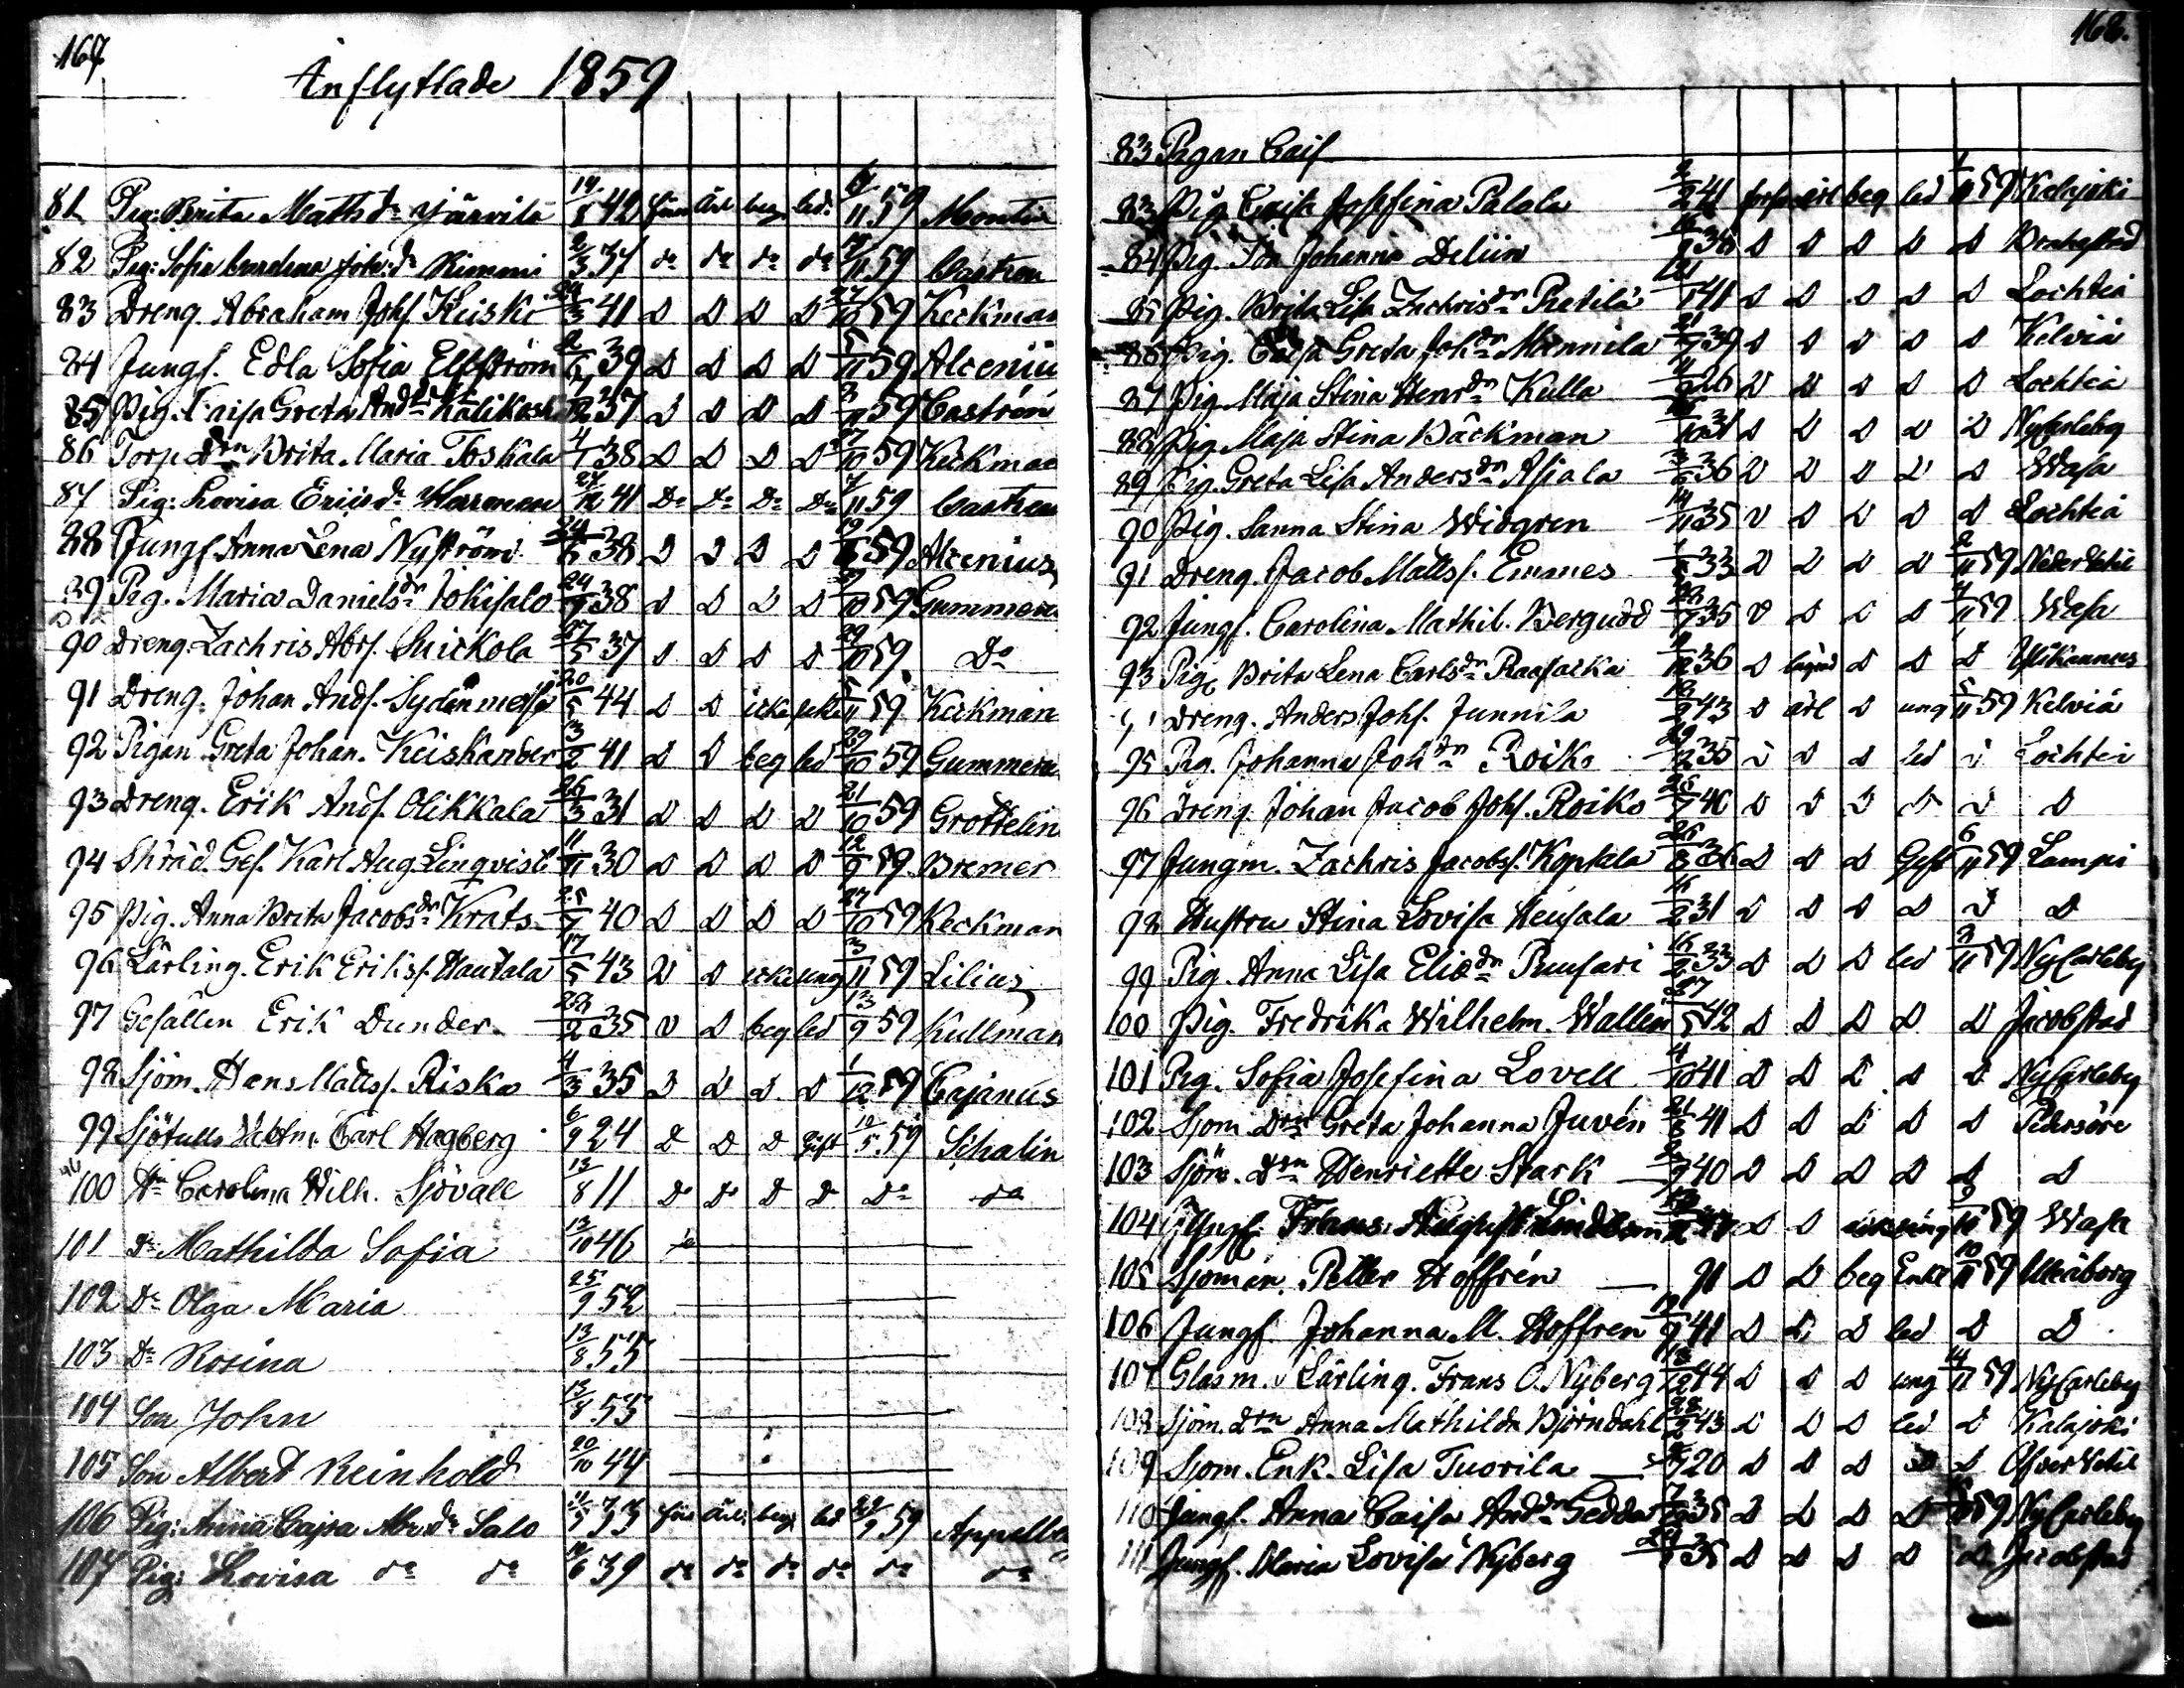 167
Inflyttade 1859
81 Pig: Brita Matts dr Järvilä 14/8 42 ärl beg led. 11 59 Montin
82 Pig: Sofia Carolina Joh: dr Rimmi 2/3 37 do do do do 11 59 Castren
83 Dreng. Abraham Johs. Keiski 3 41 D D D D 27/10 59 Keckman
84 Jungf. Edla Sofia Elfström 2/6 39 D D D D 5/11 59 Alcenius
85 Pig. Caisa Greta Andrs dr Kalikoski 12 37 D D D D 11 59 Castrén
86 Torp. drn Brita Maria Toskala 4/1 38 D D D D 27/10 59 Keckman
87 Pig: Lovisa Erics dr Herronen 27/12 41 Do Do Do Do 7/11 59 Castren
88 Jungf Anna Lena Nyström 24/6 38 D D D D 19 59 Alcenius
89 Pig. Maria Daniels dr Jokisalo 24/9 38 D D D D 10 59 Gummerus
90 Dreng. Zachris Abrs. Suickola 27/5 37 D D D D 29/10 59 Do
91 Dreng. Johan Ands. Sydänmetsä 20/5 44 D D icke icke 5/11 59 Keckman
92 Pigan Greta Johan. Keiskander 13/2 41 D D beg led 29/10 59 Gummerus
93 Dreng. Erik Ands. Olikkala 26/3 31 D D D D 21/10 59 Grottelin
94 Skräd. Ges. Karl Aug. Linqvist 11/11 30 D D D D 12/9 59 Bremer
95 Pig. Anna Brita Jacobs dr Krats 25/7 40 D D D D 27/10 59 Keckman
96 Lärling. Erik Eriks. Hautala 17/5 43 D D icke ung 3/11 59 Lilius
97 Gesällen Erik Dunder 2 35 D D beg led 13/9 59 Kullman
98 Sjöm. Hans Matts. Riska 4/3 35 D D D D 1/12 59 Cajanus
99 Sjötulls Vaktm. Carl Hagberg 6/9 24 D D D gift 10/5 59 Schalin
100 Hu Carolina Wilh. Sjövall 13/8 11 Do Do D D Do do
101 Dr Mathilda Sofia 13/10 46
102 Dr Olga Maria 25/9 52
103 Dr Rosina 13/8 55
104 Son John 13/8 55
105 Son Albert Reinhold 20/10 44
106 Pig: Anna Cajsa Abr. dr Salo 33 ärl beg led 59 Appelberg
107 Pig: Lovisa do do 6 39 do do do do do do
168.
83 Pigan Cais
83 Pig. Caisa Josefina Palola 2/2 41 ärl beg led 1/11 59 Kalajoki
84 Pig. Ida Johanna Deliin 9 36 D D D D D Brahestad
85 Pig. Brita Lisa Zachris dr Pietilä 41 D D D D D Lochteå
86 Pig. Caisa Greta Joh. dr Mennila 21/9 39 D D D D D Kelviå
87 Pig Maja Stina Henr dr Kulla 26 D D D D D Lochteå
88 Pig Maja Stina Bäckman 10 31 D D D D D NyCarleby
89 Pig. Greta Lisa Anders dr Asiala 36 D D D D D Wasa
90 Pig. Sanna Stina Widgren 11 35 D D D D D Lochteå
91 Dreng. Jacob Matts. Emmes 33 D D D D 2/11 59 Neder Vetil
92 Jungf. Carolina Mathil. Bergudd 35 D D D D 4/11 59 Wasa
93 Pig. Brita Lena Carls dr Raasacka 12 36 D D D D Ylikannus
Dreng. Anders Johs. Junnila 43 D ärl D ung 5/11 59 Kelviå
95 Pig. Johanna Joh dr Roiko 29/12 35 D D D led D Lochteå
96 Dreng. Johan Jacob Johs. Roiko 40 D D D D D D
97 Jungm. Zachris Jacobs. Koptala 26/8 36 D D D Gift 6/11 59 Lampi
98 Hustru Stina Lovisa Heusala 16/2 31 D D D D D D
99 Pig. Anna Lisa Elis dr Puusari 16/2 33 D D D led 9/11 59 NyCarleby
100 Pig. Fredrika Wilhelm. Wallin 27/5 42 D D D D D Jacobstad
101 Pig. Sofia Josefina Lovell 4/10 41 D D D D D NyCarleby
102 Sjom. drn Greta Johanna Juvén 21/8 41 D D D D D Pedersöre
103 Sjöm. drn Henriette Stark 9 40 D D D D D D
104 Frans August Lindbom D D icke ung 9/10 59 Wasa
105 Sjöman. Petter Hoffrén 91 D D beg Enkl 10/11 59 Uleåborg
106 Jungf Johanna M. Hoffren 19/9 41 D D D led D D
107 Glasm. Lärling. Frans O. Nyberg 18/12 44 D D D ung 14/11 59 NyCarleby
108 Sjöm. drn Anna Mathilda Björndahl 28/2 43 D D D led D Kalajoki
109 Sjom. Enk. Lisa Tuorila 20 D D D D D Öfver Vetil
110 Jungf. Anna Caisa And dr Gedda 35 D D D D 59 NyCarleby
111 Jungf. Maria Lovisa Nyberg 24 35 D D D D D Jacobstad